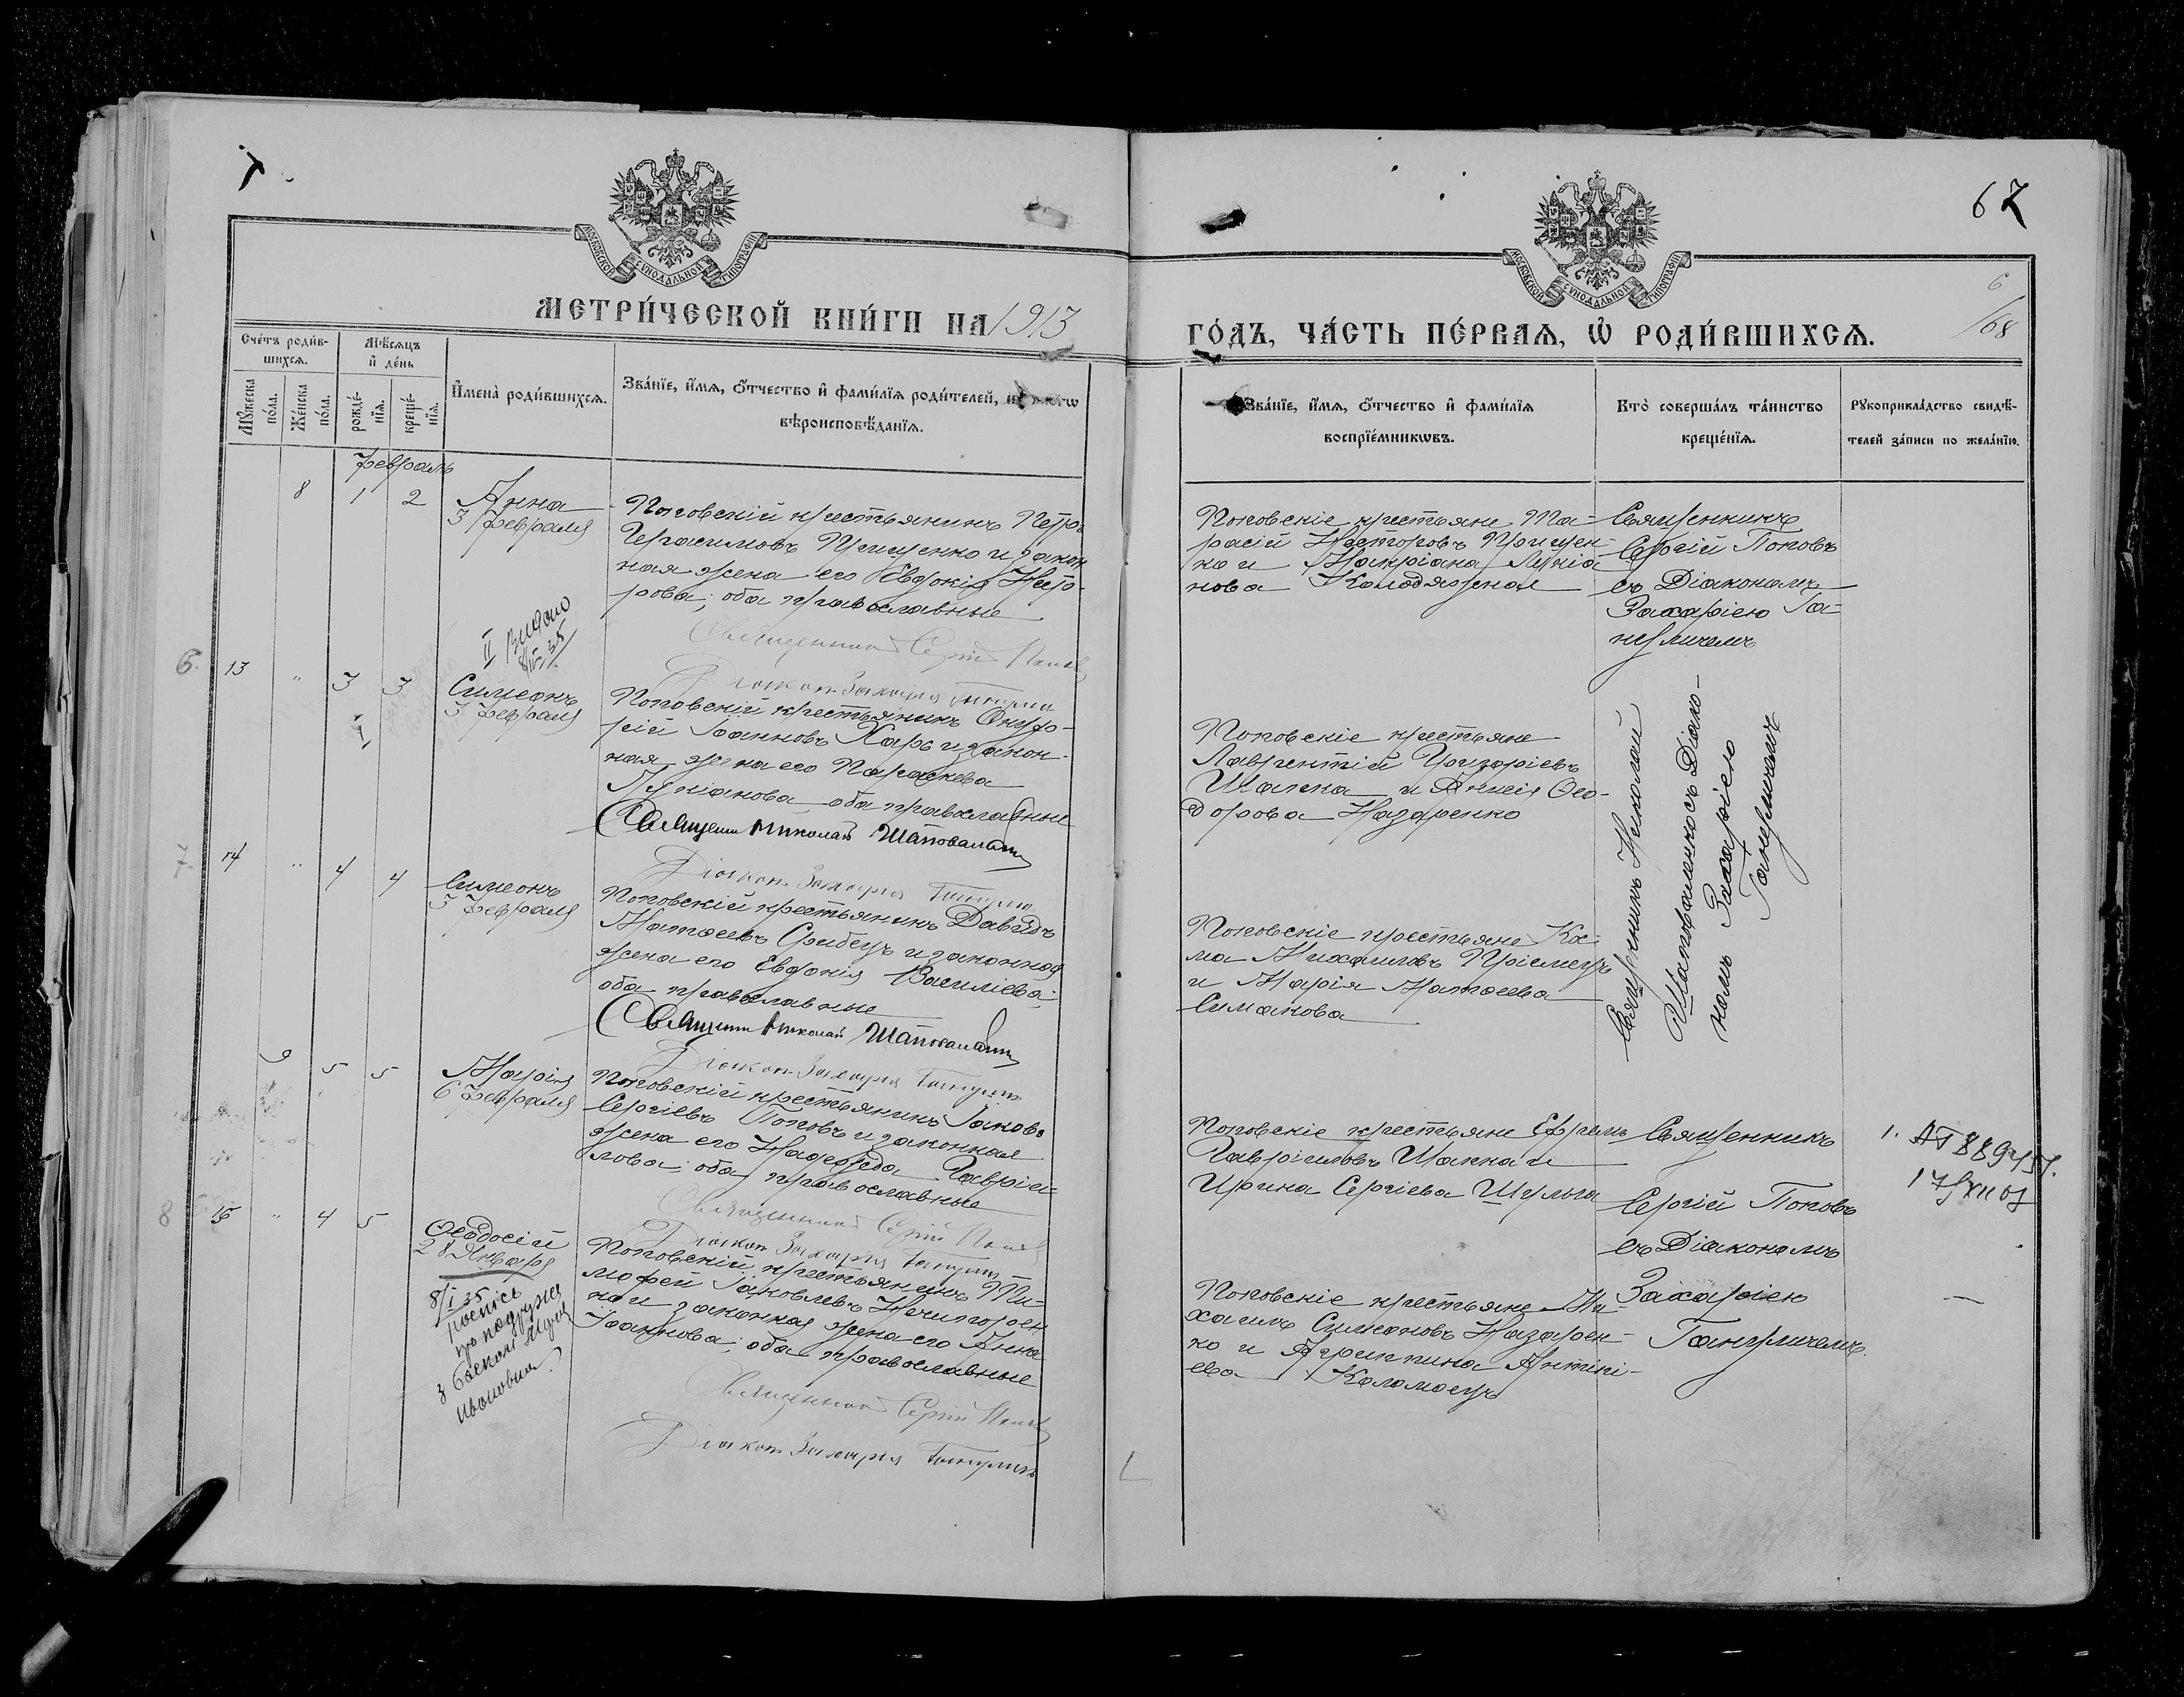 67
МОСКОВСКОЙ СѴНОДАЛЬНОЙ ТИПОГРАФІИ
МОСКОВСКОЙ СѴНОДАЛЬНОЙ ТИПОГРАФІИ
МЕТРИ́ЧЕСКОЙ КНИ́ГИ НА 1913
ГО́ДЪ, ЧА́СТЬ ПЕ́РВАЯ, Ѡ҆ РОДИ́ВШИХСЯ.
6
/68
Сче́тъ роди́в-
шихся.
Мѣ́сяцъ
и҆ де́нь
Мꙋ́жеска по́ла.
Же́нска по́ла.
рожде́-
нїя.
креще́-
нїя.
И҆мена̀ роди́вшихся.
Зва́нїе, и҆́мя, ѻ҆́тчество и҆ фами́лїя роди́телей,
вѣроисповѣ́данїя.
Зва́нїе, и҆́мя, ѻ҆́тчество и҆ фами́лїя
воспрїе́мникѡвъ.
Кто̀ соверша́лъ та́инство
креще́нїя.
Рꙋкоприкла́дство свидѣ́-
телей за́писи по жела́нїю.
Февраль
8 1 2
Анна
3 Февраля
Поповскій крестьянинъ Петръ
Герасимовъ Грищенко и закон
ная жена его Евдокія Несто-
рова; оба православные
Священник Сергій Попов
Діакон Захарія
Поповскіе крестьяне Та-
расій Несторовъ Грищен-
ко и Макріана Лукіа-
нова Колодяжная
Священникъ
Сергій Поповъ
съ Діакономъ
Захаріею Га-
II Видано
6. 13 " 3 3
Симеонъ
3 Февраля
Поповскій крестьянинъ Онуф-
рій Іоанновъ Харь и закон-
ная жена его Параскева
Лукианова оба православные
Священник Николай Шаповаленко
Діакон Захарія
Поповскіе крестьяне
Лаврентій Григоріевъ
Шапка и Анисія Ѳео-
дорова Назаренко
Священникъ Николай
Шаповаленко съ Діако-
номъ Захаріею
7. 14 " 4 4
Симеонъ
3 Февраля
Поповскій крестьянинъ Давидъ
Матѳеевъ Срибецъ и законная
жена его Евдокія Василіева;
оба православные
Священник Николай Шаповаленко
Діакон Захарія
Поповскіе крестьяне Кос-
ма Михаиловъ Пріемецъ
и Марія Матѳеева
Симанова
9 5 5
Марія
6 Февраля
Поповскій крестьянинъ Іаковъ
Сергіевъ Поповъ и законная
жена его Надежда Гавріи-
лова; оба православные
Священник Сергій Попов
Діакон Захарія
Поповскіе крестьяне Ефремъ
Гавріиловъ Шапка и
Ирина Сергіева Шульга
Священникъ
Сергій Поповъ
съ Діакономъ
Захаріею
8 15 " 4 5
Ѳеодосій
28 Января
8/I 35
Поповскій крестьянинъ Ти-
мофей Іаковлевъ Нечипорен
ко и законная жена его Анна
Іоаннова; оба православные
Священник Сергій Попов
Діакон Захарія
Поповскіе крестьяне Ми-
хаилъ Симеоновъ Назарен-
ко и Агриппина Антипі-
ева Коломоецъ